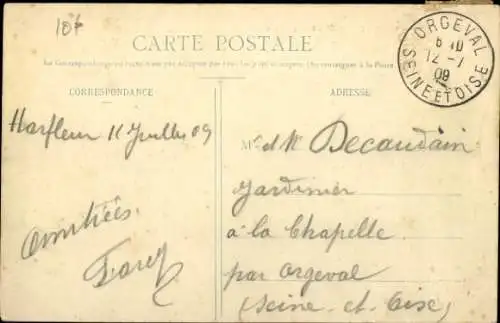 10f
CARTE POSTALE
La Correspondance au recto n'est pas acceptée par tous les pays étrangers. (Se renseigner à la Poste)
CORRESPONDANCE
ADRESSE
ORGEVAL
12-7
09
SEINE ET OISE
Harfleur 11 Juillet 09
M. et Me Decaudain
Jardinier
Amitiées
à la Chapelle
par Orgeval
(Seine et Oise)